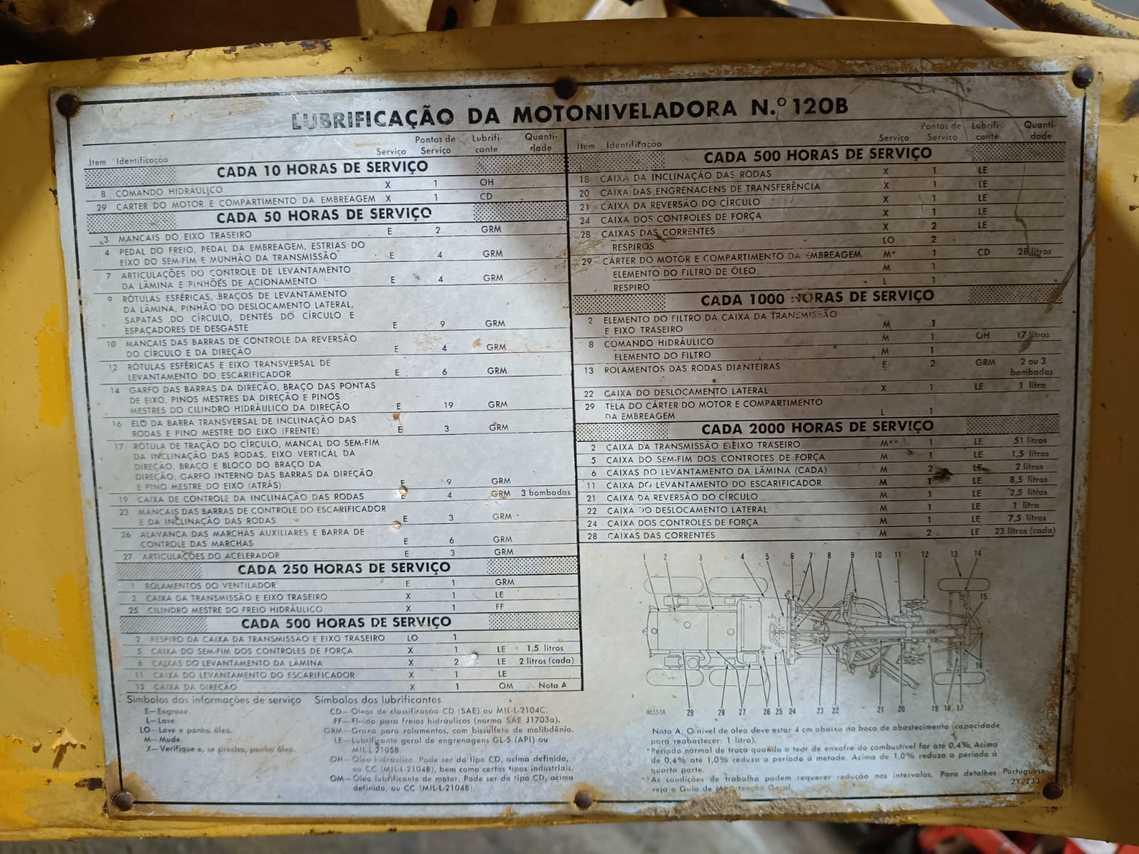 LUBRIFICAÇÃO DA MOTONIVELADORA N.º 120B
Item Identificação Serviço Pontos de Serviço Lubrificante Quantidade
CADA 10 HORAS DE SERVIÇO
8 COMANDO HIDRÁULICO X 1 OH
29 CÁRTER DO MOTOR E COMPARTIMENTO DA EMBREAGEM X 1 CD
CADA 50 HORAS DE SERVIÇO
3 MANCAIS DO EIXO TRASEIRO E 2 GRM
4 PEDAL DO FREIO, PEDAL DA EMBREAGEM, ESTRIAS DO
EIXO DO SEM-FIM E MUNHÃO DA TRANSMISSÃO E 4 GRM
7 ARTICULAÇÕES DO CONTROLE DE LEVANTAMENTO
DA LÂMINA E PINHÕES DE ACIONAMENTO E 4 GRM
9 RÓTULAS ESFÉRICAS, BRAÇOS DE LEVANTAMENTO
DA LÂMINA, PINHÃO DO DESLOCAMENTO LATERAL,
SAPATAS DO CÍRCULO, DENTES DO CÍRCULO E
ESPAÇADORES DE DESGASTE E 9 GRM
10 MANCAIS DAS BARRAS DE CONTROLE DA REVERSÃO
DO CÍRCULO E DA DIREÇÃO E 4 GRM
12 RÓTULAS ESFÉRICAS E EIXO TRANSVERSAL DE
LEVANTAMENTO DO ESCARIFICADOR E 6 GRM
14 GARFO DAS BARRAS DA DIREÇÃO, BRAÇO DAS PONTAS
DE EIXO, PINOS MESTRES DA DIREÇÃO E PINOS
MESTRES DO CILINDRO HIDRÁULICO DA DIREÇÃO E 19 GRM
16 ELO DA BARRA TRANSVERSAL DE INCLINAÇÃO DAS
RODAS E PINO MESTRE DO EIXO (FRENTE) E 3 GRM
17 RÓTULA DE TRAÇÃO DO CÍRCULO, MANCAL DO SEM-FIM
DA INCLINAÇÃO DAS RODAS, EIXO VERTICAL DA
DIREÇÃO, BRAÇO E BLOCO DO BRAÇO DA
DIREÇÃO, GARFO INTERNO DAS BARRAS DA DIREÇÃO
E PINO MESTRE DO EIXO (ATRÁS) E 9 GRM
19 CAIXA DE CONTROLE DA INCLINAÇÃO DAS RODAS E 4 GRM 3 bombadas
23 MANCAIS DAS BARRAS DE CONTROLE DO ESCARIFICADOR
E DA INCLINAÇÃO DAS RODAS E 3 GRM
26 ALAVANCA DAS MARCHAS AUXILIARES E BARRA DE
CONTROLE DAS MARCHAS E 6 GRM
27 ARTICULAÇÕES DO ACELERADOR E 3 GRM
CADA 250 HORAS DE SERVIÇO
1 ROLAMENTOS DO VENTILADOR E 1 GRM
2 CAIXA DA TRANSMISSÃO E EIXO TRASEIRO X 1 LE
25 CILINDRO MESTRE DO FREIO HIDRÁULICO X 1 FF
CADA 500 HORAS DE SERVIÇO
2 RESPIRO DA CAIXA DA TRANSMISSÃO E EIXO TRASEIRO LO 1
5 CAIXA DO SEM-FIM DOS CONTROLES DE FORÇA X 1 LE 1,5 litros
6 CAIXAS DO LEVANTAMENTO DA LÂMINA X 2 LE 2 litros (cada)
11 CAIXA DO LEVANTAMENTO DO ESCARIFICADOR X 1 LE
15 CAIXA DA DIREÇÃO X 1 OM Nota A
Símbolos das informações de serviço
E—Engraxe.
L—Lave
LO—Lave e ponha óleo.
M—Mude.
X—Verifique e, se preciso, ponha óleo.
Símbolos dos lubrificantes
CD—Óleos de classificação CD (SAE) ou MIL-L-2104C.
FF—Fluido para freios hidráulicos (norma SAE J1703a).
GRM—Graxa para rolamentos, com bissulfeto de molibdênio.
LE—Lubrificante geral de engrenagens GL-5 (API) ou
MIL-L 2105B
OH—Óleo hidráulico. Pode ser do tipo CD, acima definido,
ou CC (MIL-L-2104B), bem como certos tipos industriais.
OM—Óleo lubrificante de motor. Pode ser do tipo CD, acima
definido, ou CC (MIL-L-2104B)
Item Identificação Serviço Pontos de Serviço Lubrificante Quantidade
CADA 500 HORAS DE SERVIÇO
18 CAIXA DA INCLINAÇÃO DAS RODAS X 1 LE
20 CAIXA DAS ENGRENAGENS DE TRANSFERÊNCIA X 1 LE
21 CAIXA DA REVERSÃO DO CÍRCULO X 1 LE
24 CAIXA DOS CONTROLES DE FORÇA X 1 LE
28 CAIXAS DAS CORRENTES X 2 LE
RESPIROS LO 2
29 CÁRTER DO MOTOR E COMPARTIMENTO DA EMBREAGEM M* 1 CD 28 litros
ELEMENTO DO FILTRO DE ÓLEO M 1
RESPIRO L 1
CADA 1000 HORAS DE SERVIÇO
2 ELEMENTO DO FILTRO DA CAIXA DA TRANSMISSÃO
E EIXO TRASEIRO M 1
8 COMANDO HIDRÁULICO M 1 OH 17 litros
ELEMENTO DO FILTRO M 1
13 ROLAMENTOS DAS RODAS DIANTEIRAS E 2 GRM 2 ou 3 bombadas
22 CAIXA DO DESLOCAMENTO LATERAL X 1 LE 1 litro
29 TELA DO CÁRTER DO MOTOR E COMPARTIMENTO
DA EMBREAGEM L 1
CADA 2000 HORAS DE SERVIÇO
2 CAIXA DA TRANSMISSÃO E EIXO TRASEIRO M** 1 LE 51 litros
5 CAIXA DO SEM-FIM DOS CONTROLES DE FORÇA M 1 LE 1,5 litros
6 CAIXAS DO LEVANTAMENTO DA LÂMINA (CADA) M 2 LE 2 litros
11 CAIXA DO LEVANTAMENTO DO ESCARIFICADOR M 1 LE 8,5 litros
21 CAIXA DA REVERSÃO DO CÍRCULO M 1 LE 2,5 litros
22 CAIXA DO DESLOCAMENTO LATERAL M 1 LE 1 litro
24 CAIXA DOS CONTROLES DE FORÇA M 1 LE 7,5 litros
28 CAIXAS DAS CORRENTES M 2 LE 22 litros (cada)
1 2 3 4 5 6 7 8 9 10 11 12 13 14
15
29 28 27 26 25 24 23 22 21 20 19 18 16 17
Nota A. O nível de óleo deve estar 4 cm abaixo da boca de abastecimento (capacidade
para reabastecer: 1 litro).
*Período normal de troca quando o teor de enxofre do combustível for até 0,4%. Acima
de 0,4% até 1,0% reduza o período à metade. Acima de 1,0% reduza o período à
quarta parte.
**As condições de trabalho podem requerer redução nos intervalos. Para detalhes
veja o Guia de Manutenção Geral.
Portuguese